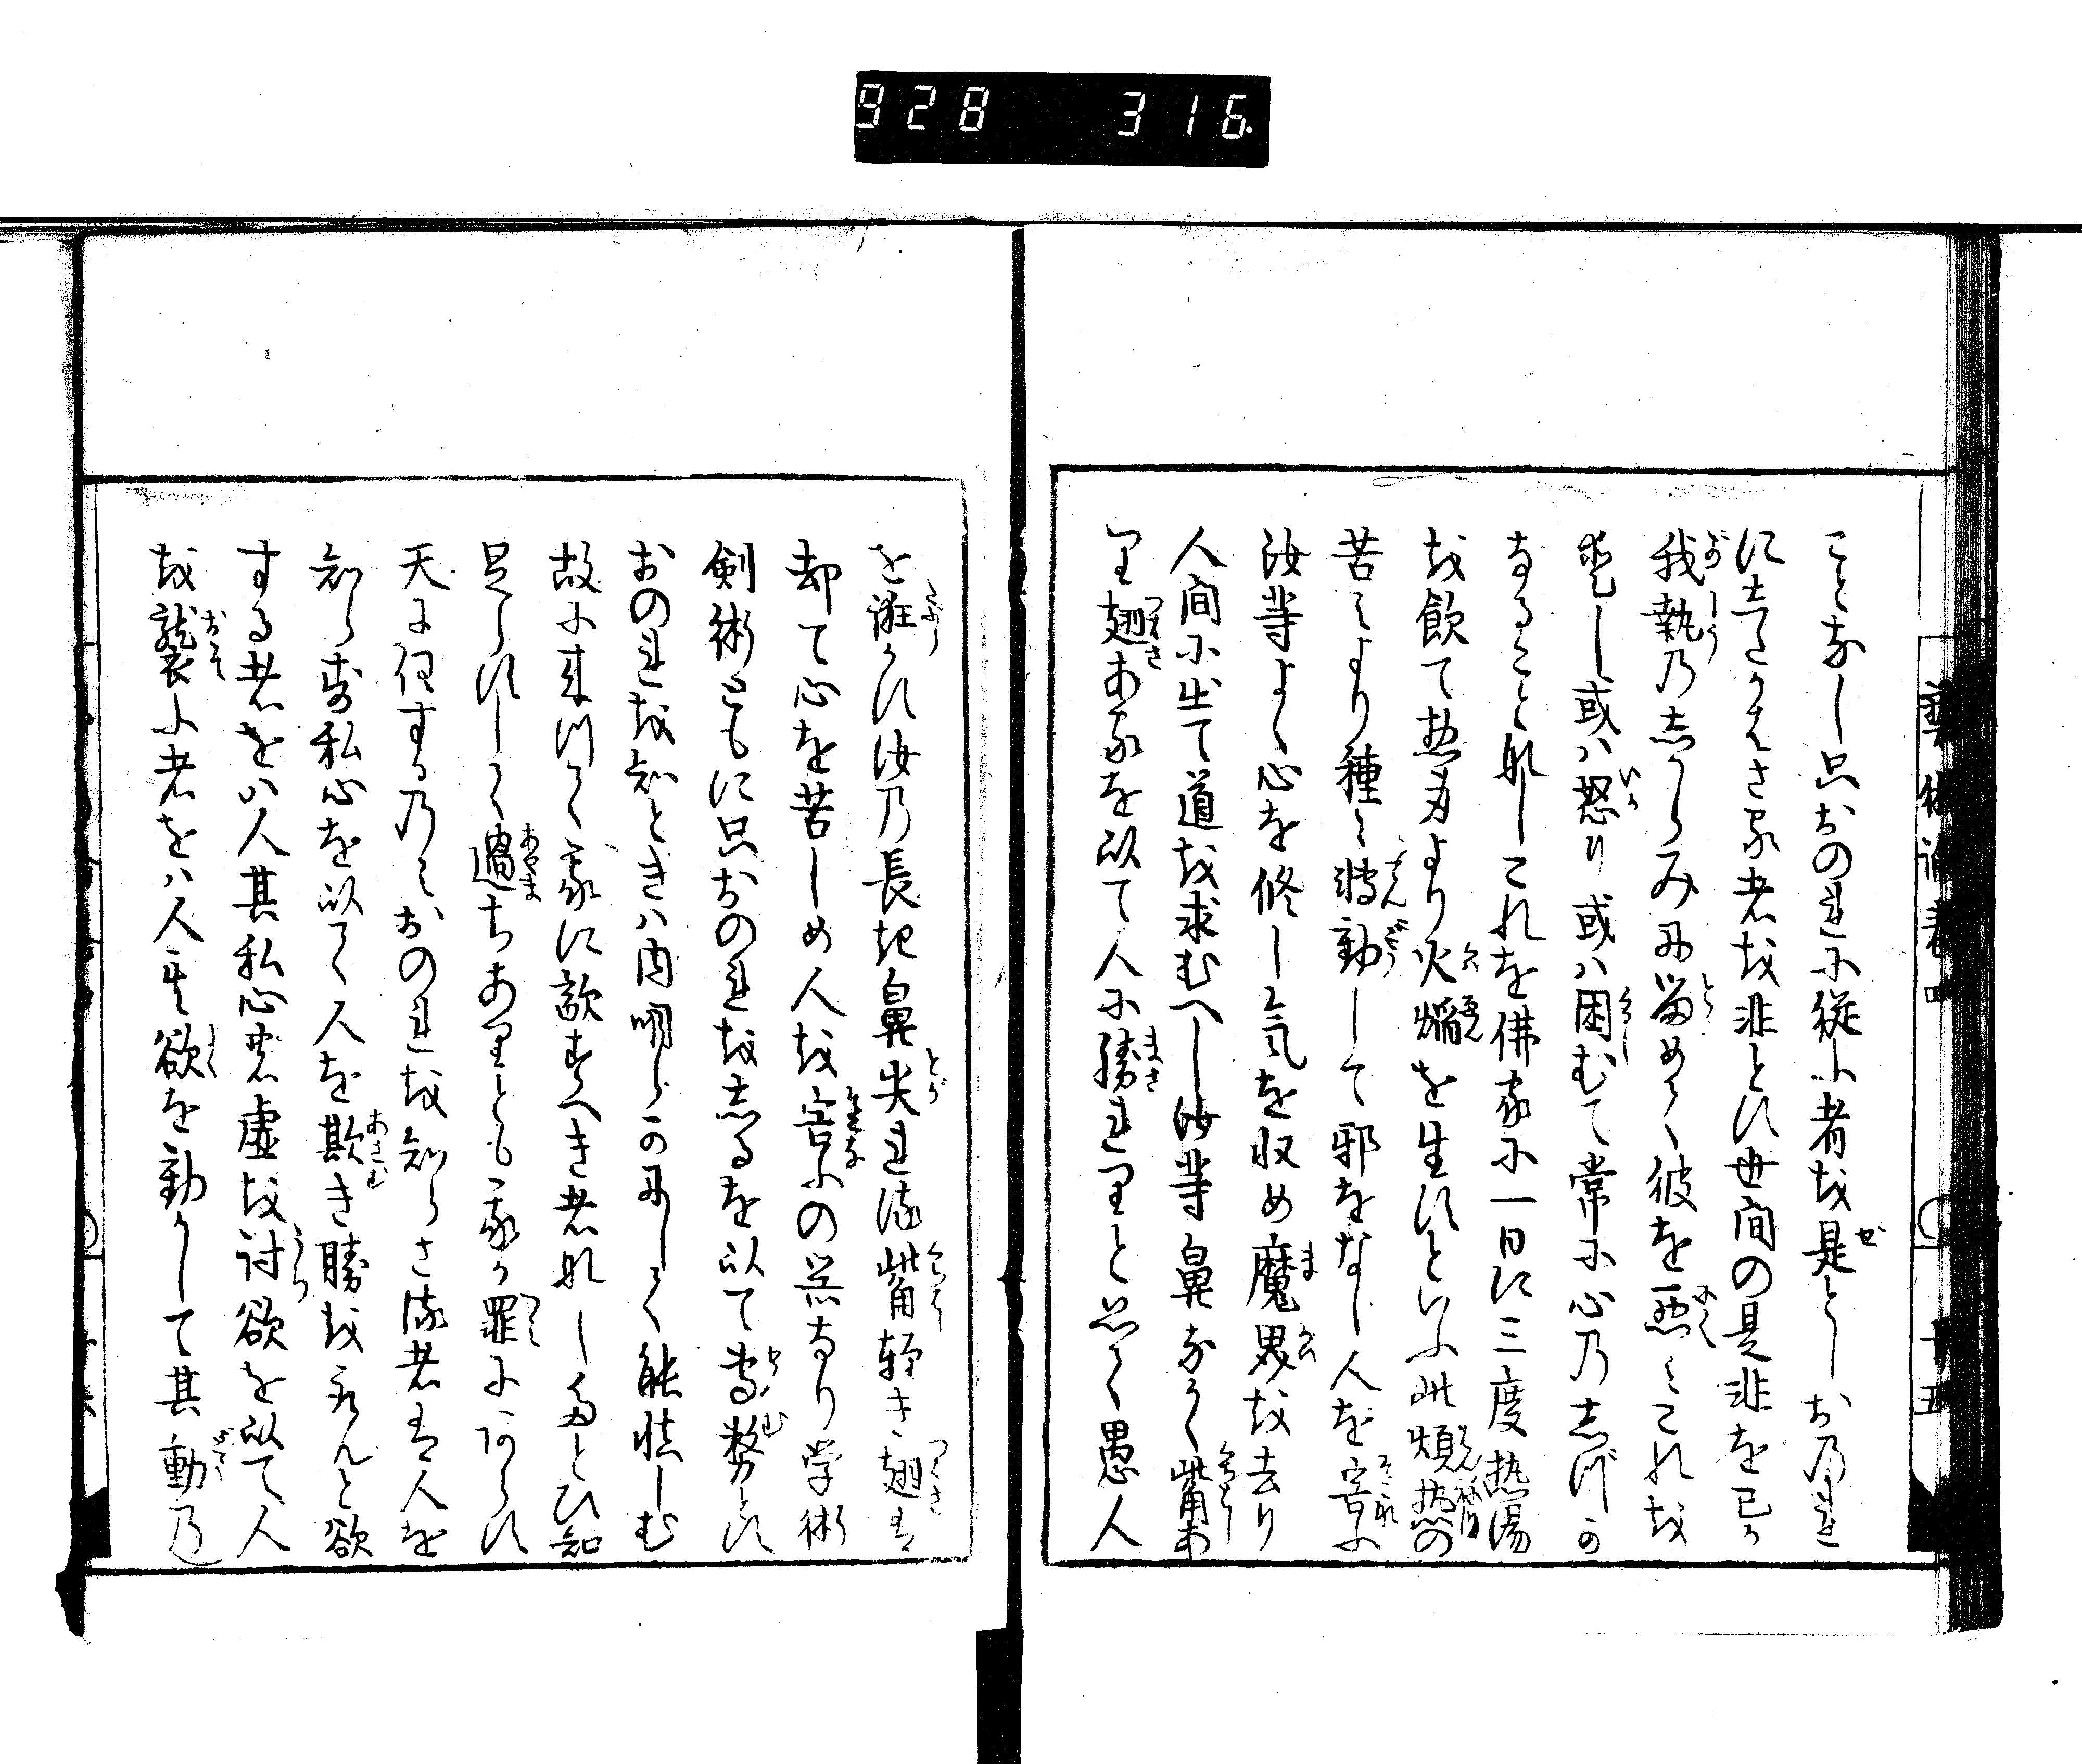 928 316
藝術論巻四 十五
ことなし只おのれに従ふ者を是としおのれ
にしたかはさる者を非とす世間の是非を己か
我執のしからみに留めて彼を悪みこれを
愛し或は怒り或は困むて常に心のしづか
なること无しこれを佛家に一日に三度热湯
を飲て热身より火焔を生すといふ此煩热の
苦みより種々轉動して邪をなし人を害ふ
汝等よく心を修し気を収め魔界を去り
人間に出て道を求むへし汝等鼻なかく觜あ
り翅あるを以て人に勝れりと思て愚人
を誑かす汝の長き鼻尖れる觜軽き翅は
却て心を苦しめ人を害ふの器なり学術
剣術ともに只おのれをしるを以て専務とす
おのれを知ときは内明らかにして能慎しむ
故に来りて我に敵すへき者无したとひ知
足らすして過ちありとも我か罪にあらす
天に任するのみおのれを知らさる者は人を
知らす私心を以て人を欺き勝を取んと欲
する者をは人其私心の虚を討欲を以て人
を襲ふ者をは人其欲を動かして其動の